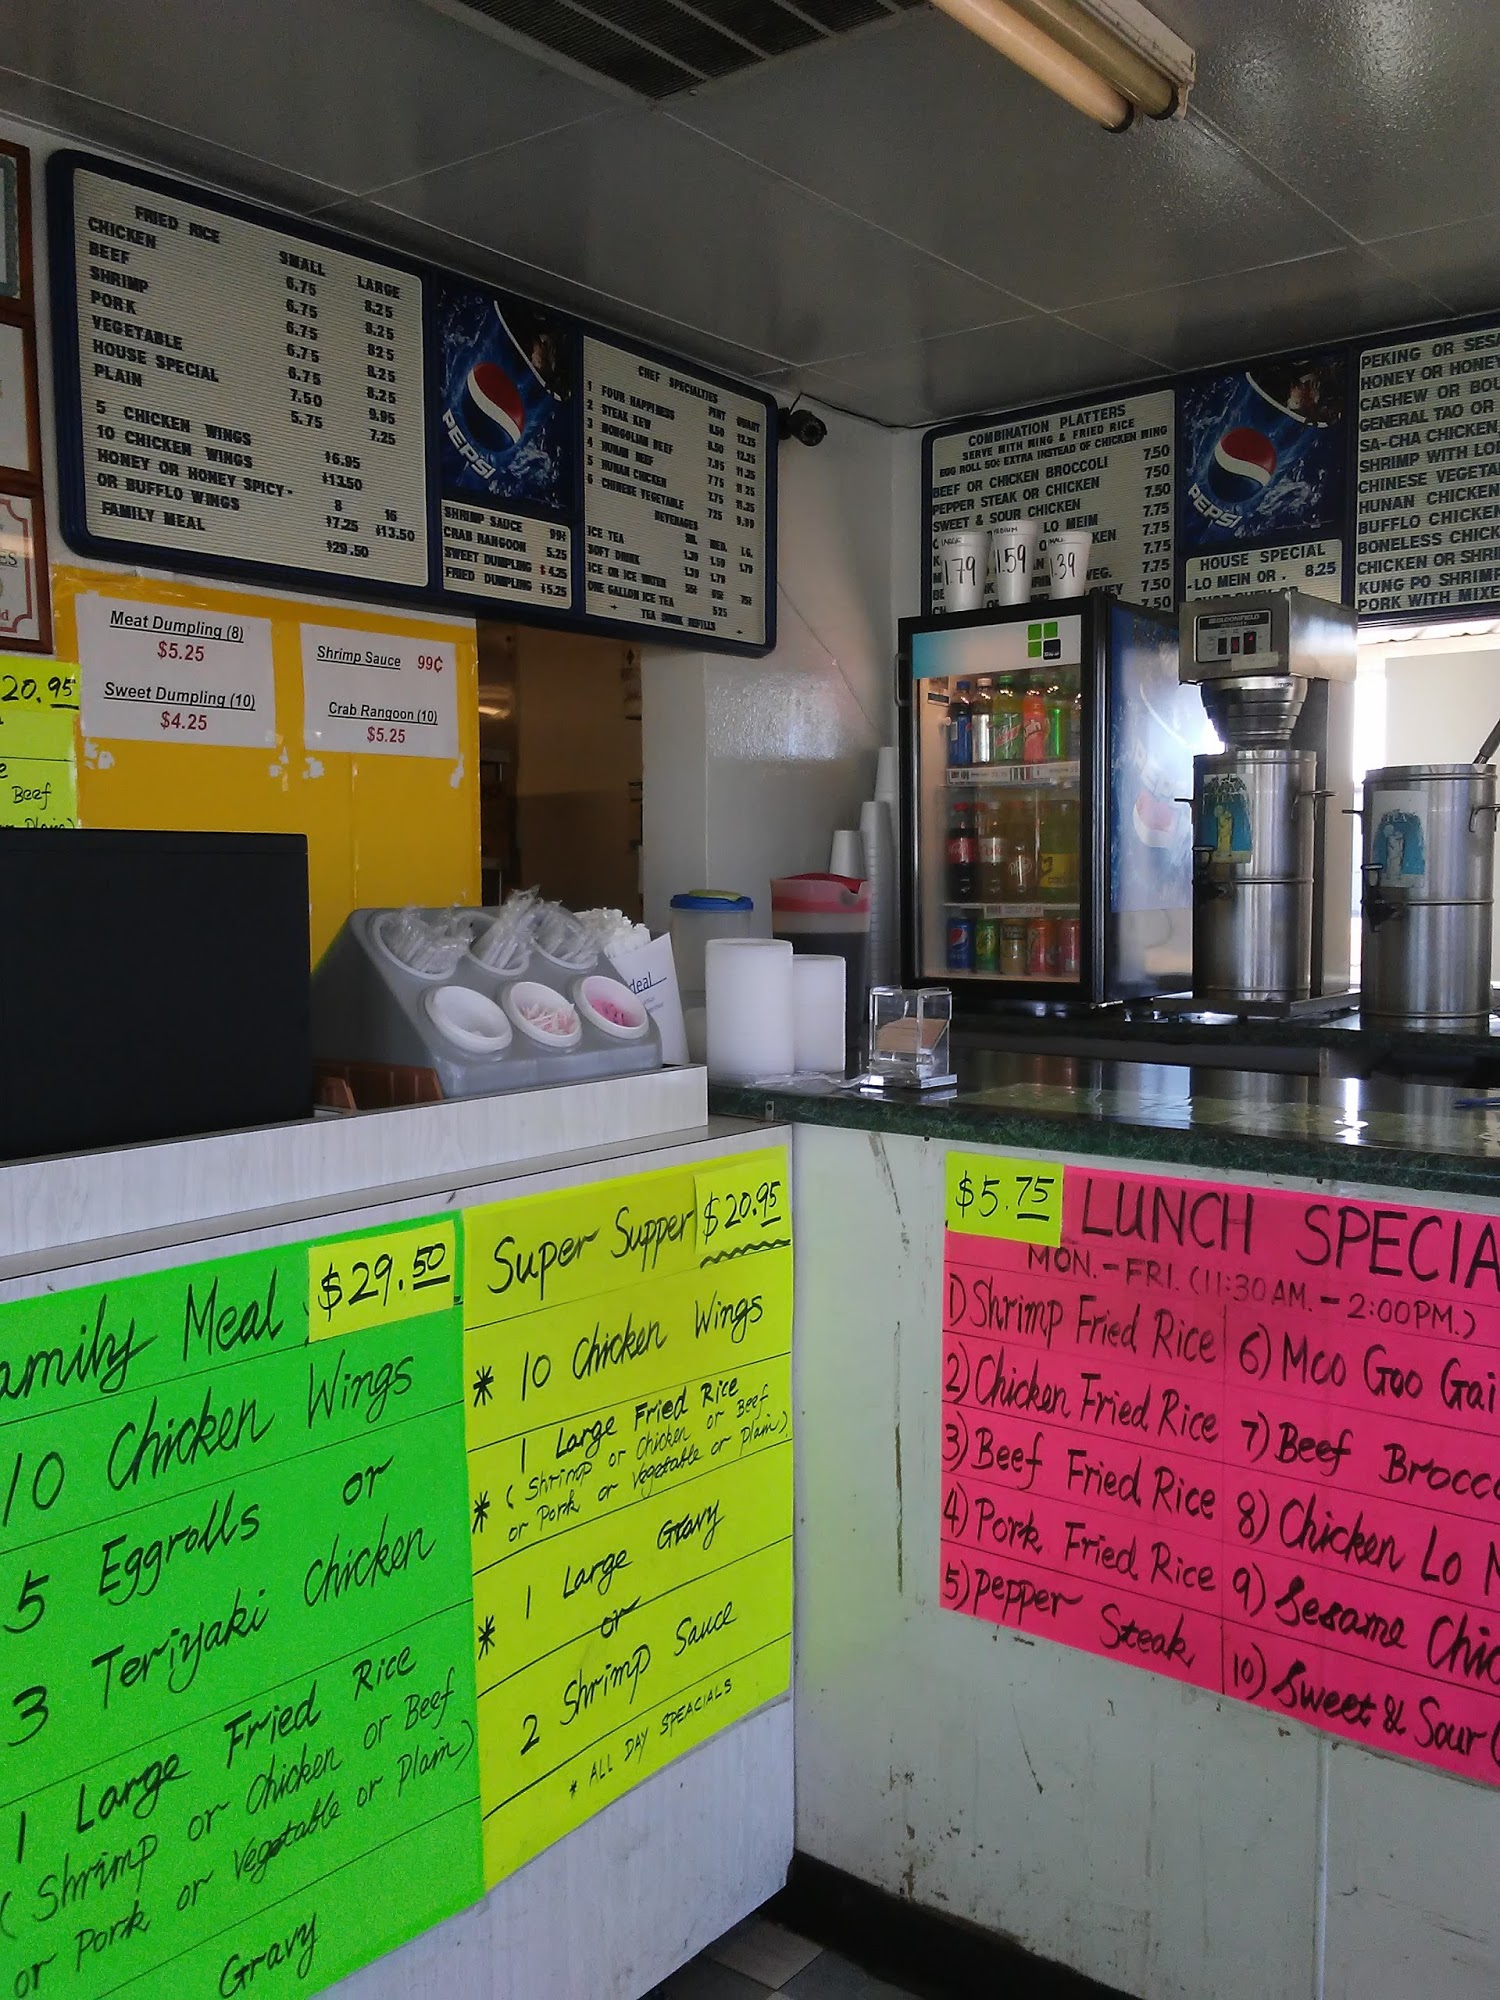 FRIED RICE
SMALL LARGE
CHICKEN 6.75 8.25
BEEF 6.75 8.25
SHRIMP 6.75 825
PORK 6.75 8.25
VEGETABLE 6.75 8.25
HOUSE SPECIAL 7.50 9.95
PLAIN 5.75 7.25
5 CHICKEN WINGS
10 CHICKEN WINGS
HONEY OR HONEY SPICY
OR BUFFLO WINGS
8 16
$7.25 $13.50
FAMILY MEAL $29.50
PEPSI
SHRIMP SAUCE 99¢
CRAB RANGOON 5.25
SWEET DUMPLING $4.25
FRIED DUMPLING $5.25
CHEF SPECIALTIES
PINT QUART
1 FOUR HAPPINESS 8.50
2 STEAK KEW 8.50
3 MONGOLIAN BEEF 7.95
4 HUNAN BEEF 7.75
5 HUNAN CHICKEN 7.75
6 CHINESE VEGETABLE 7.25
BEVERAGES
ICE TEA
SOFT DRINK
ICE OR ICE WATER
ONE GALLON ICE TEA 5.25
TEA DRINK REFILLS
COMBINATION PLATTERS
SERVE WITH WING & FRIED RICE
EGG ROLL 50¢ EXTRA INSTEAD OF CHICKEN WING
BEEF OR CHICKEN BROCCOLI 7.50
PEPPER STEAK OR CHICKEN 750
SWEET & SOUR CHICKEN 7.50
LO MEIM 7.75
7.75
7.75
VEG. 7.50
7.50
LARGE
1.79
MEDIUM
1.59
SMALL
1.39
PEPSI
HOUSE SPECIAL
LO MEIN OR 8.25
PEKING OR SESA
HONEY OR HONEY
CASHEW OR BOU
GENERAL TAO OR
SA-CHA CHICKEN
SHRIMP WITH LO
CHINESE VEGETA
HUNAN CHICKEN
BUFFLO CHICKEN
BONELESS CHICK
CHICKEN OR SHRI
KUNG PO SHRIMP
PORK WITH MIXE
Meat Dumpling (8)
$5.25
Sweet Dumpling (10)
$4.25
Shrimp Sauce 99¢
Crab Rangoon (10)
$5.25
20.95
Beef
Plain)
BLOOMFIELD
TEA
TEA
deal
Family Meal $29.50
10 Chicken Wings
5 Eggrolls or
3 Teriyaki Chicken
1 Large Fried Rice
(Shrimp or Chicken or Beef
or Pork or Vegetable or Plain)
Gravy
Super Supper $20.95
* 10 Chicken Wings
* 1 Large Fried Rice
(Shrimp or Chicken or Beef
or Pork or Vegetable or Plain)
* 1 Large Gravy
or
2 Shrimp Sauce
* ALL DAY SPEACIALS
$5.75 LUNCH SPECIA
MON.-FRI. (11:30AM.-2:00PM.)
1) Shrimp Fried Rice
2) Chicken Fried Rice
3) Beef Fried Rice
4) Pork Fried Rice
5) Pepper Steak
6) Moo Goo Gai
7) Beef Brocco
8) Chicken Lo M
9) Sesame Chic
10) Sweet & Sour C